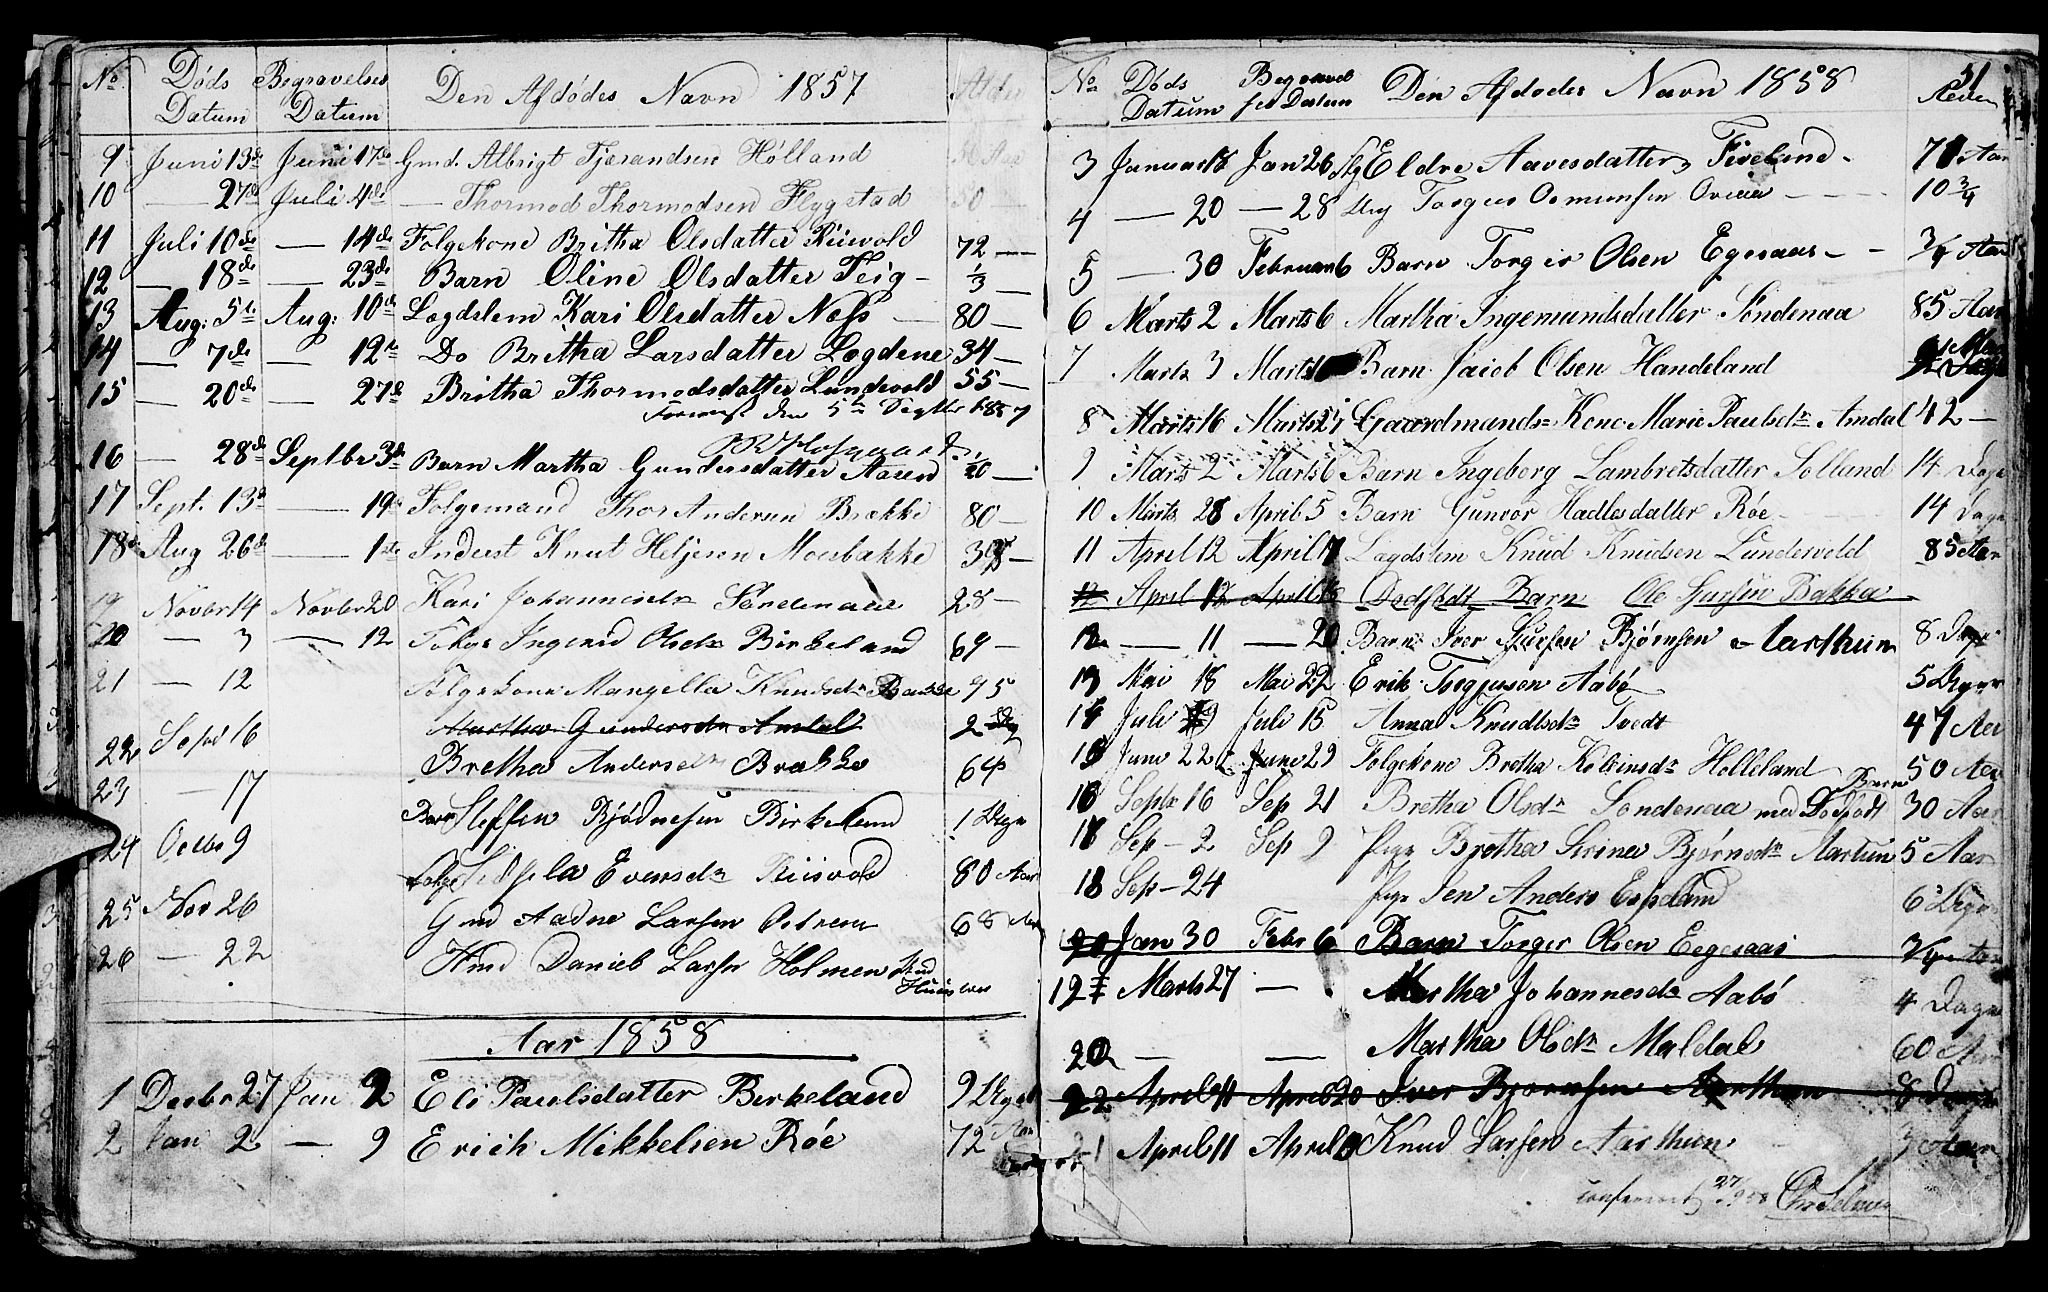 No Døds Begravelses Den Afdødes Navn 1857 Alder
Datum Datum
9 Juni 13de Juni 17de Gmd. Albrigt Tjerandsen Hølland
10 — 27de Juli 4de — Thormod Thormodsen Flygstad 50 —
11 Juli 10de — 14de Folgekone Britha Olsdatter Riisvold 72 —
12 — 18de — 23de Barn Oline Olsdatter Teig — 1/3 —
13 Aug: 5te Aug: 10de Lægdslem Kari Olsdatter Næss — 80 —
14 — 7de — 12te Do Britha Larsdatter Lægdene 34 —
15 — 20de — 27de Britha Thormodsdatter Lundevold 55 —
den 5te Septbr 1857
16 — 28de Septbr 3de Barn Martha Gundersdatter Aaren 1/20 —
17 Sept. 13de — 19de Folgemand Thor Andersen Brække 80 —
18de Aug 26de — 1ste Inderst Knut Heljesen Moesbakke 38 —
19 Novbr 14 Novbr 20 Kari Johannesdr Søndenaae 28 —
20 — 3 — 12 Ingerid Olsdr Birkeland 69 —
21 — 12 Folgekone Mangella Knudsdr Bakke 95
Martha Gundersdr Amdal 2 Dg
22 Sept 16 Bretha Andersdr Brække 64
23 — 17 Barn Steffen Bjødnesen Birkeland 1 Dgn
24 Octbr 9 Folge Sidsela Eversdr Riisvold 80 Aar
25 Nov 26 Gmd Aadne Larsen Østrem 68 Aar
26 — 22 Hmd Daniel Larsen Holmen
Aar 1858
1 Decbr 27 Jan 2 Eli Paulsdatter Birkeland 9
2 Jan 2 — 9 Erich Mikkelsen Røe 72 Aar
51
No Døds Begravel Den Afdødes Navn 1858
Datum ses Datum
3 Januar 18 Jan 26 Eldre Aavesdatter Fiveland — 70 Aar
4 — 20 — 28 Torgeus Osmunsen 10 3/4
5 — 30 Februar 6 Barn Torger Olsen Egesaas — 3/4 Aar
6 Marts 2 Marts 6 Martha Ingemundsdatter Søndenaa 85 Aar
7 Marts 3 Marts Barn Jacob Olsen Handeland
8 Marts 16 Marts 21 Gaardmands Kone Marie Paulsdr Amdal 42 —
9 Marts 2 Marts 6 Barn Ingeborg Lambretsdatter Sølland 14 Dage
10 Marts 28 April 5 Barn Gunvor Hadlesdatter Røe 14 Dage
11 April 12 April 17 Lægdslim Knud Knudsen Lundevold 85 Aar
12 April 12 April 18 Dødfødt Barn Ole Sjursen Bakka
12 — 11 — 20 Barn Iver Sjursen Bjørnsen Aarthun 8 Dage
13 Mai 18 Mai 22 Erik Torgjusen Aabø 5
14 Juli Juli 15 Anna Knudtsdr Tvedt 47 Aar
15 Juni 22 Juni 29 Folgekone Bretha Kolbinsdr Holleland 50 Aar
16 Septbr 16 Sep 21 Bretha Olsdr Søndenaa med Dødfødt Barn 30 Aar
18 Sep — 2 Sep 9 Pige Bretha Serina Bjørnsdr Aartun 5 Aar
18 Sep — 24 Jen Anders Espeland 6
20 Jan 30 Febr 6 Barn Torger Olsen Eegesaas 3/4 Aar
19 Marts 27 — Martha Johannesdr Aabø 4 Dage
20 — — Martha Olsdr Maldal 60 Aar
22 April 11 April 20 Iver Bjørnsen Aarthun 8 Dage
21 April 11 April Knud Larsen Aarthun 3 Aar
27/9 58